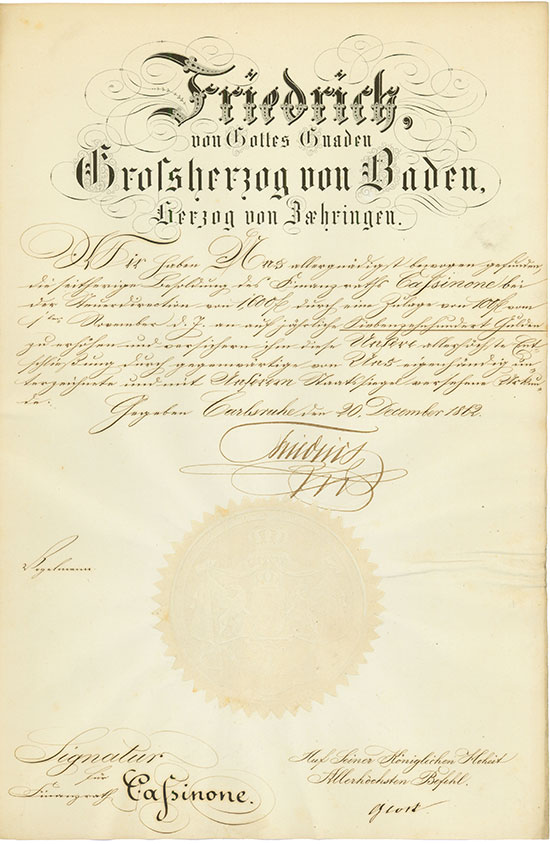 Friedrich,
von Gottes Gnaden
Grossherzog von Baden,
Herzog von Zæhringen.
Wir haben Uns allergnädigst bewogen gefunden,
die seitherige Besoldung des Finanzraths Caßinone bei
der Steuerdirection von 1600 f durch eine Zulage von 100 f vom
1ten November d. J. an auf jährliche Siebenzehnhundert Gulden
zu erhöhen und versichern ihn diese Unsere allerhöchste Ent-
schließung durch gegenwärtige von Uns eigenhändig un-
terzeichnete und mit Unserem Staatssiegel versehene Urkun-
de.
Gegeben Carlsruhe den 20. December 1862.
Friedrich
Vogelmann
Signatur
für
Finanzrath Caßinone.
Auf Seiner Königlichen Hoheit
Allerhöchsten Befehl.